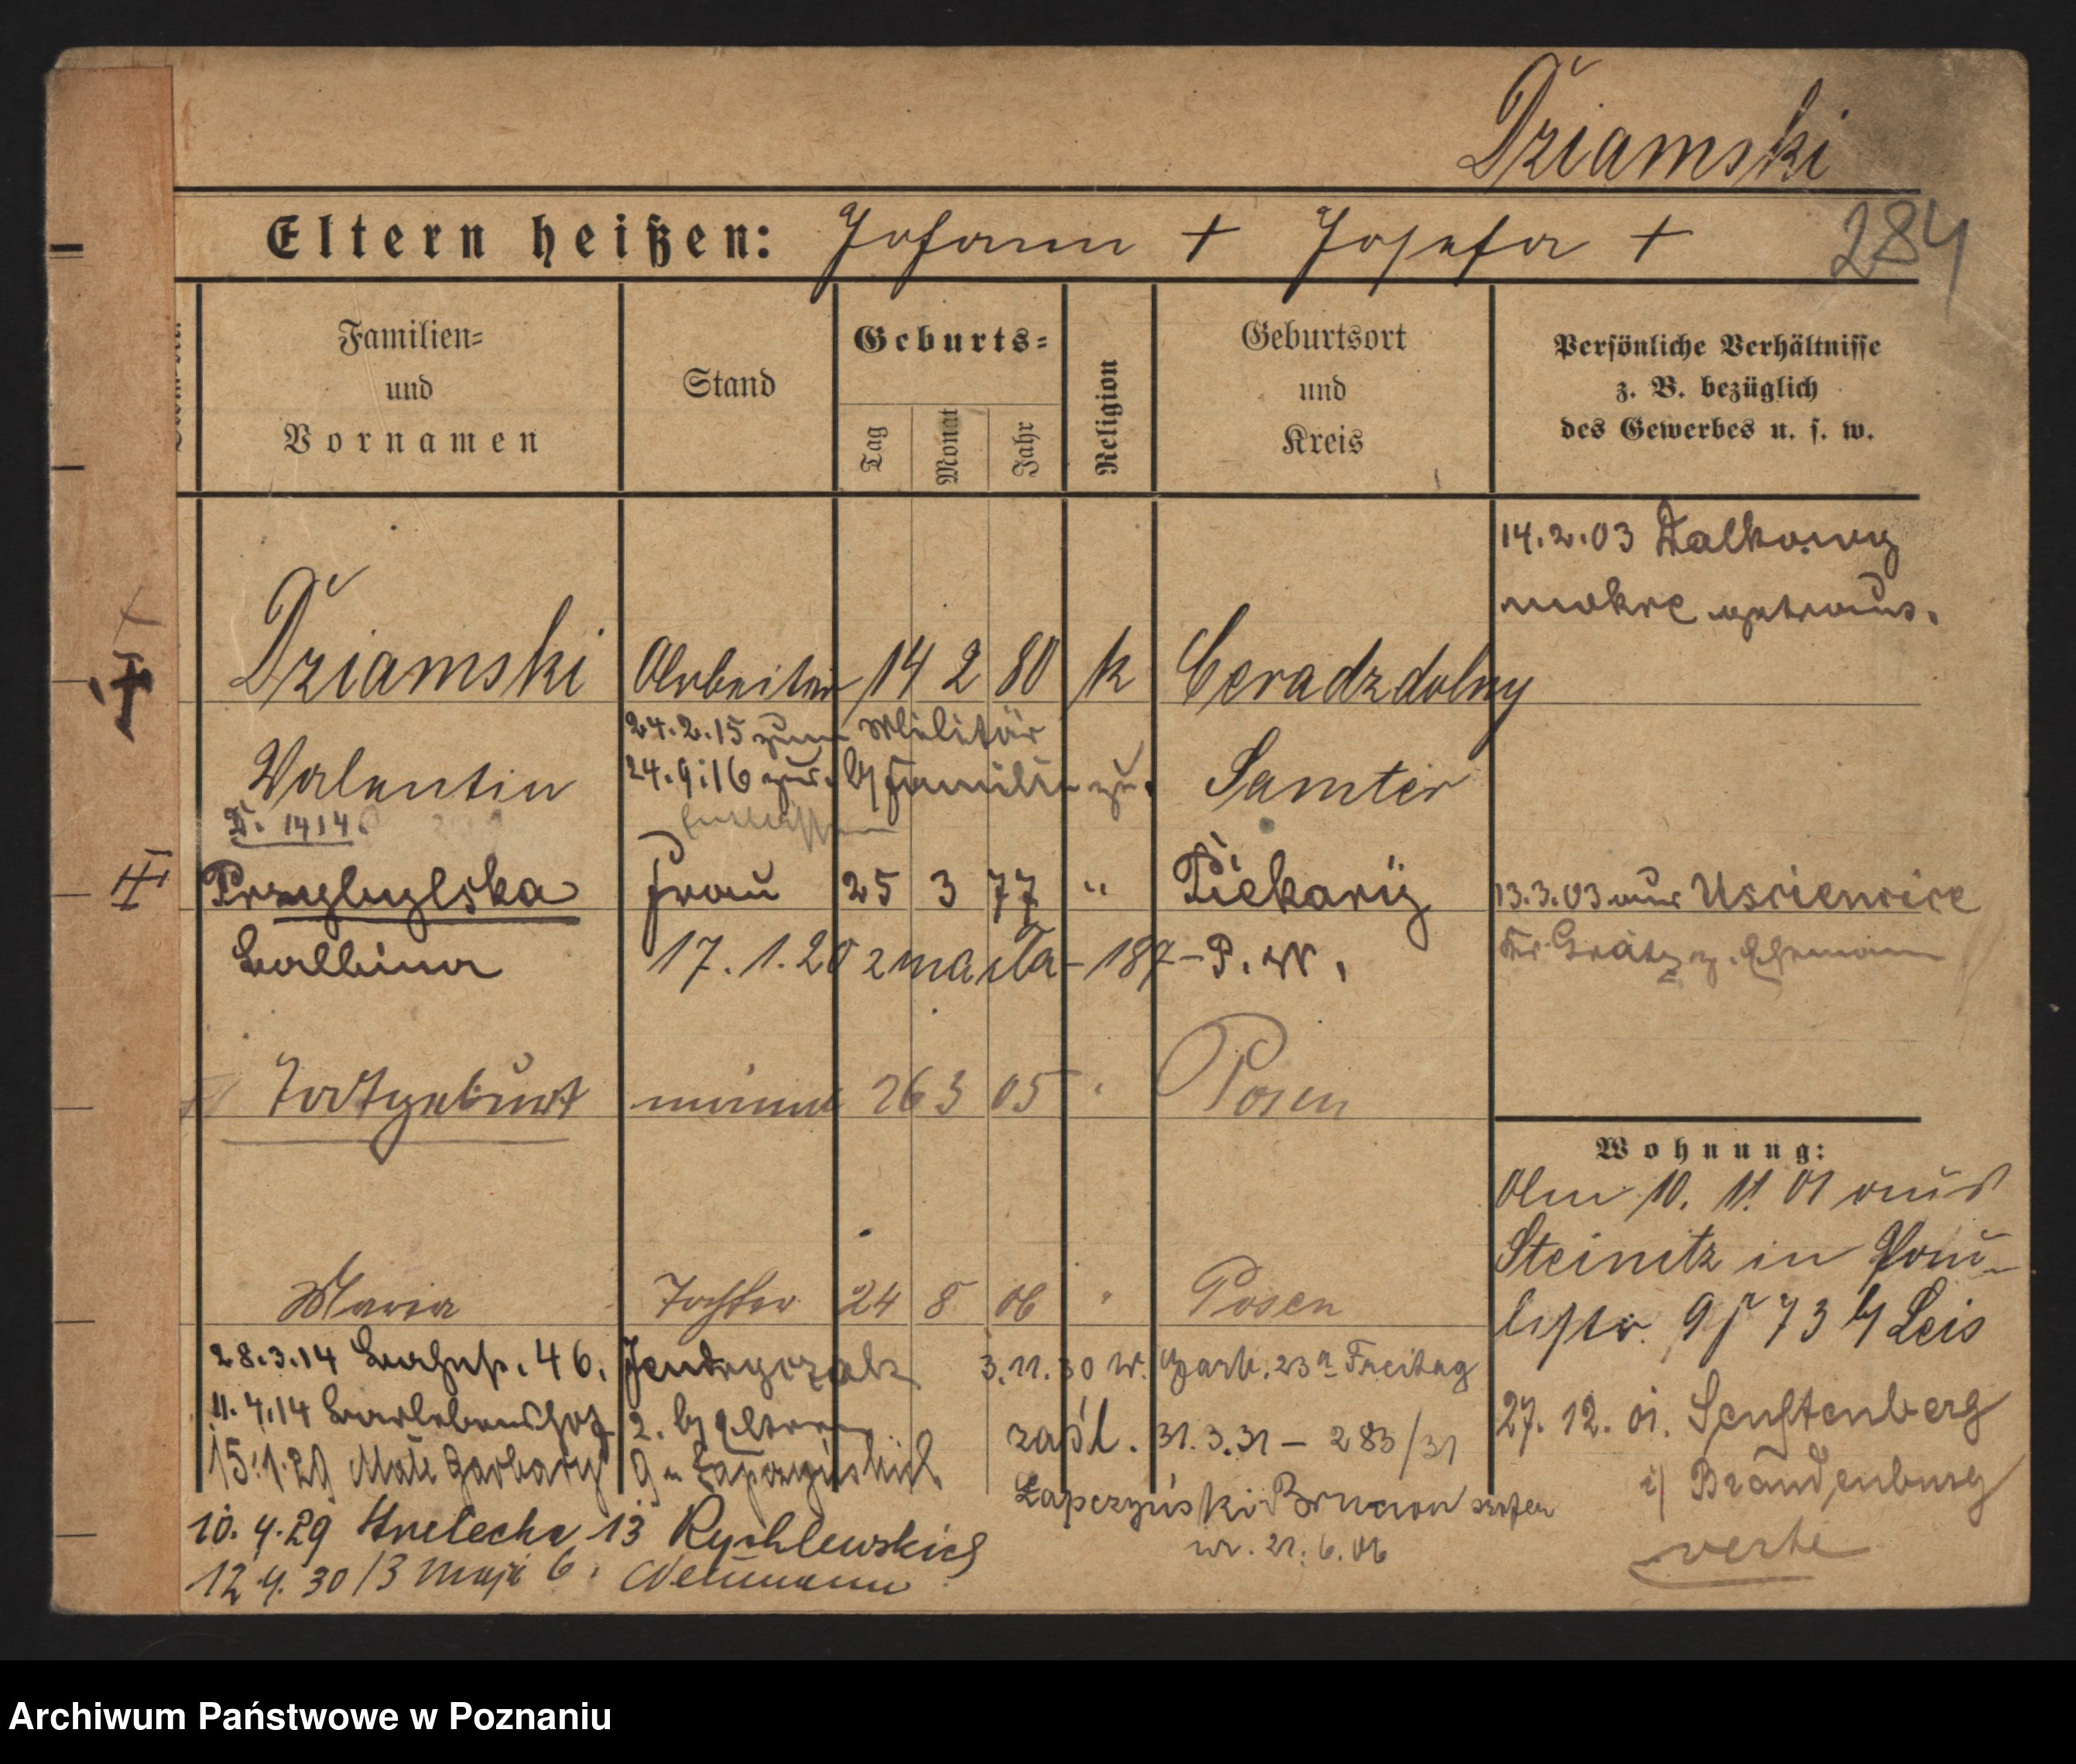 Dziamski
284
Eltern heißen: Johann + Josefa +
Familien=
und
Vornamen
Stand
Geburts=
Tag
Monat
Jahr
Religion
Geburtsort
und
Kreis
Persönliche Verhältnisse
z. B. bezüglich
des Gewerbes u. s. w.
14.2.03
mokre
Dziamski Arbeiter 14 2 80 k Ceradzdolny
24.2.15 zum Militär
Valentin 24.9.16 zur. b/ Familie Samter
1414.
entlassen
Przybylska Frau 25 3 77 " Piekary 13.3.03 aus Usciencice
Balbina 17.1.20 zmarła - 187 - P. W. Kr. Grätz z. Ehemann
Totgeburt 26 3 05 " Posen
Wohnung:
Am 10. 11. 01 aus
Steinitz in
9 73 b/ Leis
Maria Tochter 24 8 06 " Posen
28.3.14 46.
3.11.30 W. Garb. 23a Freitag
27. 12. 01. Senftenberg
11.4.14 2. b/ Eltern
zaśl. 31.3.31 - 283/31
i/ Brandenburg
15.1.29 Małe Garbary 9
Łapczyński Brunon
ur. 21.6.06
verte
10.4.29 Strzelecka 13 Rychlewskich
12.4.30 /3 maja 6. Neumann
Archiwum Państwowe w Poznaniu